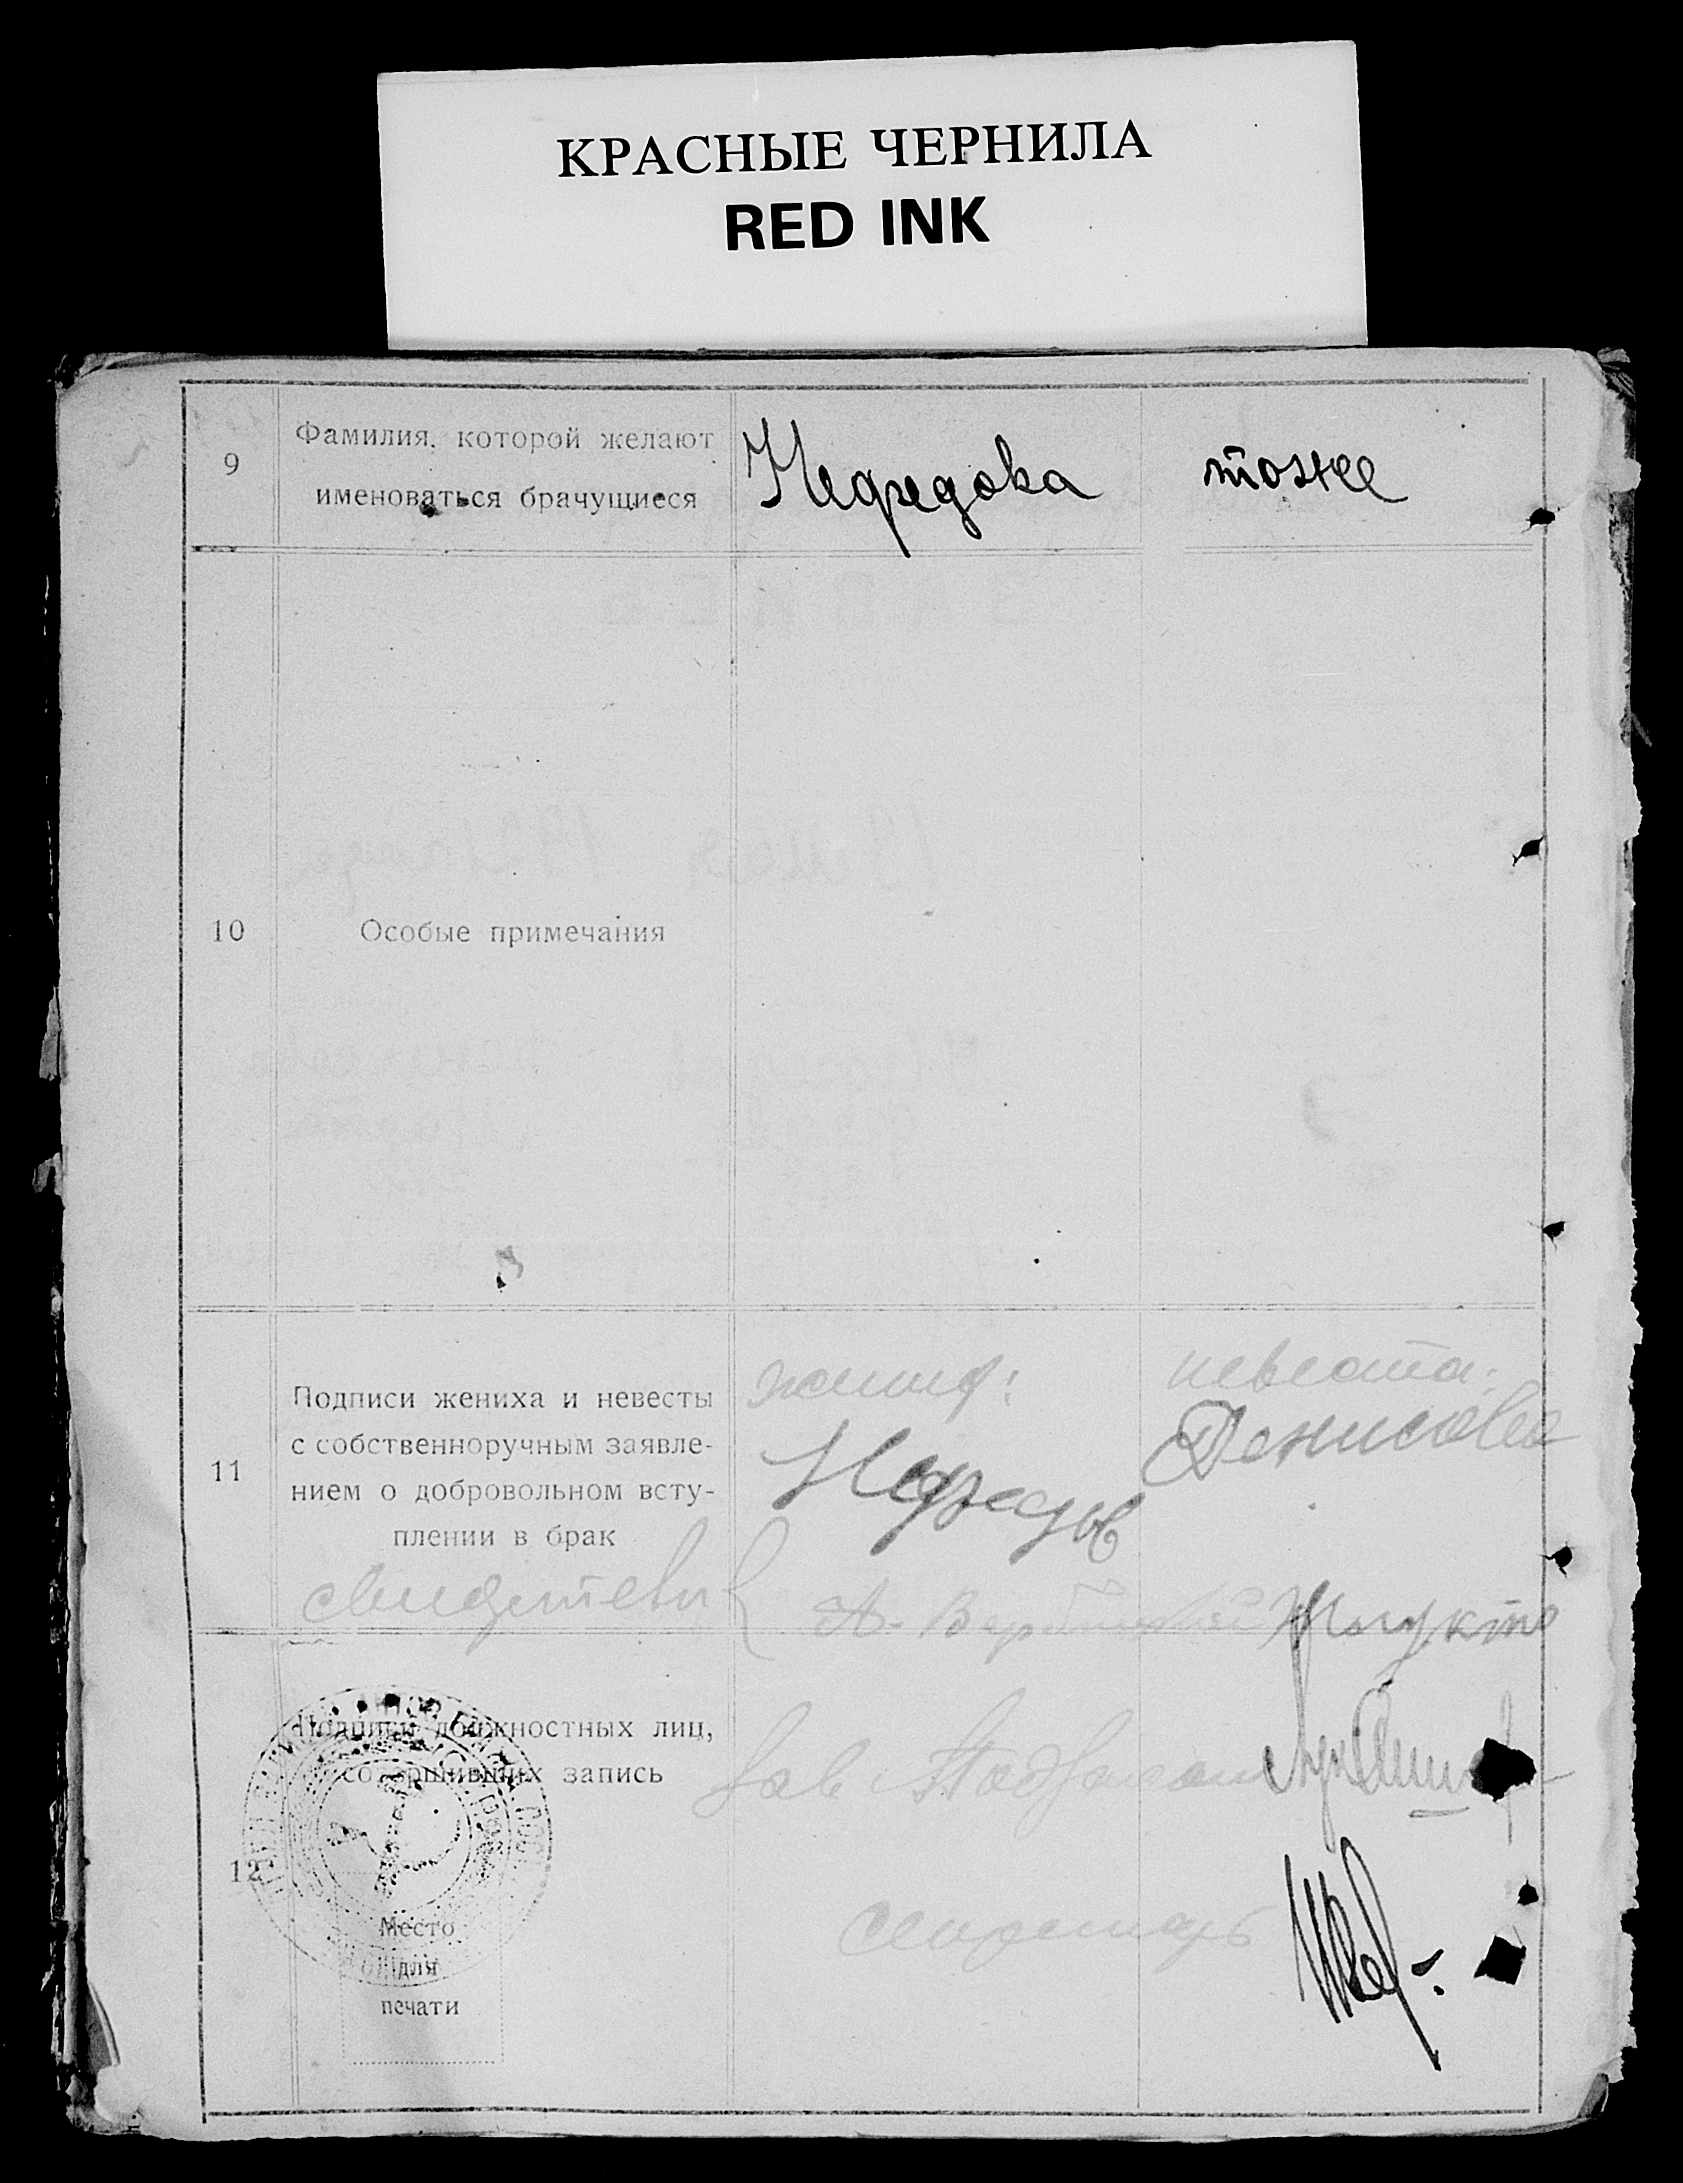 КРАСНЫЕ ЧЕРНИЛА
RED INK
9
Фамилия, которой желают
именоваться брачущиеся
Нефедова
тоже
10
Особые примечания
11
Подписи жениха и невесты
с собственноручным заявле-
нием о добровольном всту-
плении в брак
жених:
Нефедов
невеста:
Денисова
свидетели
12
Подписи должностных лиц,
совершивших запись
Зав
секретарь
Место
для
печати